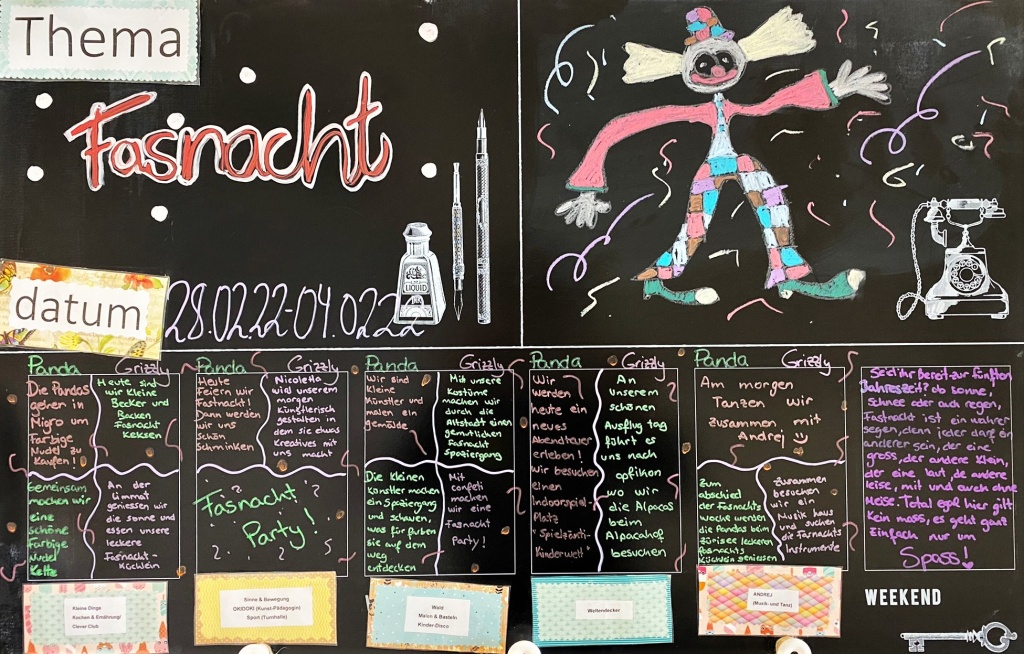 Thema
Fasnacht
LIQUID
datum
28.02.22-04.0222
Panda
Grizzly
Die Pandas
gehen in
Migro um
Farbige
Nudel zu
Kaufen!
Heute sind
wir kleine
Becker und
Backen
Fasnacht
Keksen
Gemeinsam
machen wir
eine
schöne
Farbige
Nudel
Kette
An der
Limmat
geniessen wir
die sonne und
essen unsere
leckere
Fasnacht-
Küchlein
Kleine Dinge
Kochen & Ernährung/
Clever Club
Panda
Grizzly
Heute
Feiern wir
Fastnacht!
Dann werden
wir uns
Schön
Schminken
Nicoletta
wird unserem
morgen
Künstlerisch
gestalten in
dem sie etwas
Kreatives mit
uns macht
Fasnacht
Party!
Sinne & Bewegung
OKIDOKI (Kunst-Pädagogin)
Sport (Turnhalle)
Panda
Grizzly
Wir sind
Kleine
Künstler und
malen ein
gemälde
Mit unsere
Kostüme
machen wir
durch die
Altstadt einen
gemütlichen
Fasnacht
Spaziergang
Die kleinen
Künstler machen
ein Spaziergang
und schauen,
was für farben
sie auf dem
weg
entdecken
Mit
confeti
machen
wir eine
Fasnacht
Party!
Wald
Malen & Basteln
Kinder-Disco
Panda
Grizzly
Wir
werden
heute ein
neues
Abendteuer
erleben!
Wir besuchen
einen
Indoorspiel-
Platz
"Spielgönti-
Kinderwelt"
An
unserem
schönen
Ausflug tag
fährt es
uns nach
opfikon
wo wir
die Alpacas
beim
Alpacahof
besuchen
Weltendecker
Panda
Grizzly
Am morgen
Tanzen wir
zusammen mit
Andrej
Zum
abschied
der Fasnachts
woche werden
die Pandas beim
zünisee leckeren
Fasnachts
Küchlein geniessen
Zusammen
besuchen
wir ein
Musik haus
und suchen
die Farnachts
Instrumente
ANDREJ
(Musik- und Tanz)
Seid ihr Bereit zur fünften
Jahreszeit? ob sonne,
Schnee oder auch regen,
Fastnacht ist ein wahrer
segen, denn jeder darf ein
anderer sein, der eine
gross, der andere klein,
der eine laut, de andere
leise, mit und auch ohne
Meise. Total egal hier gilt
Kein mass, es geht ganz
Einfach nur um
Spass!
WEEKEND